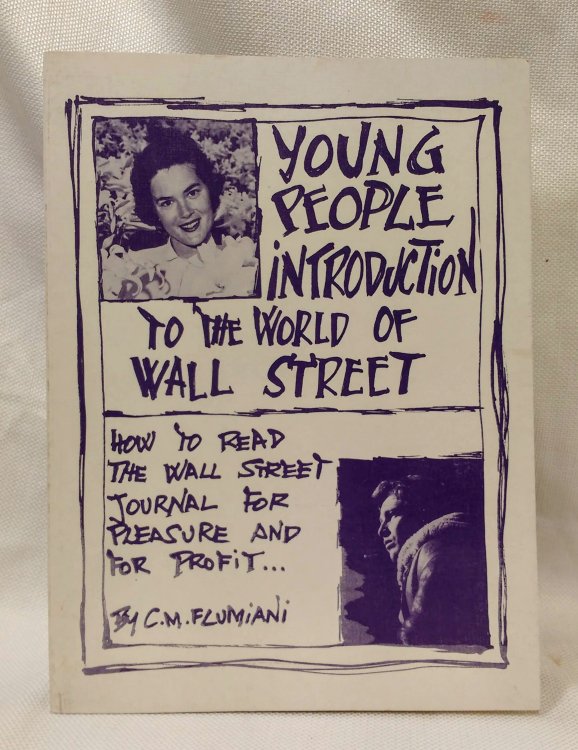 YOUNG
PEOPLE
iNTRODUCTiON
TO THE WORLD OF
WALL STREET
HOW TO READ
THE WALL STREET
JOURNAL FOR
PLEASURE AND
FOR PROFiT...
By C.M. FLUMiANi